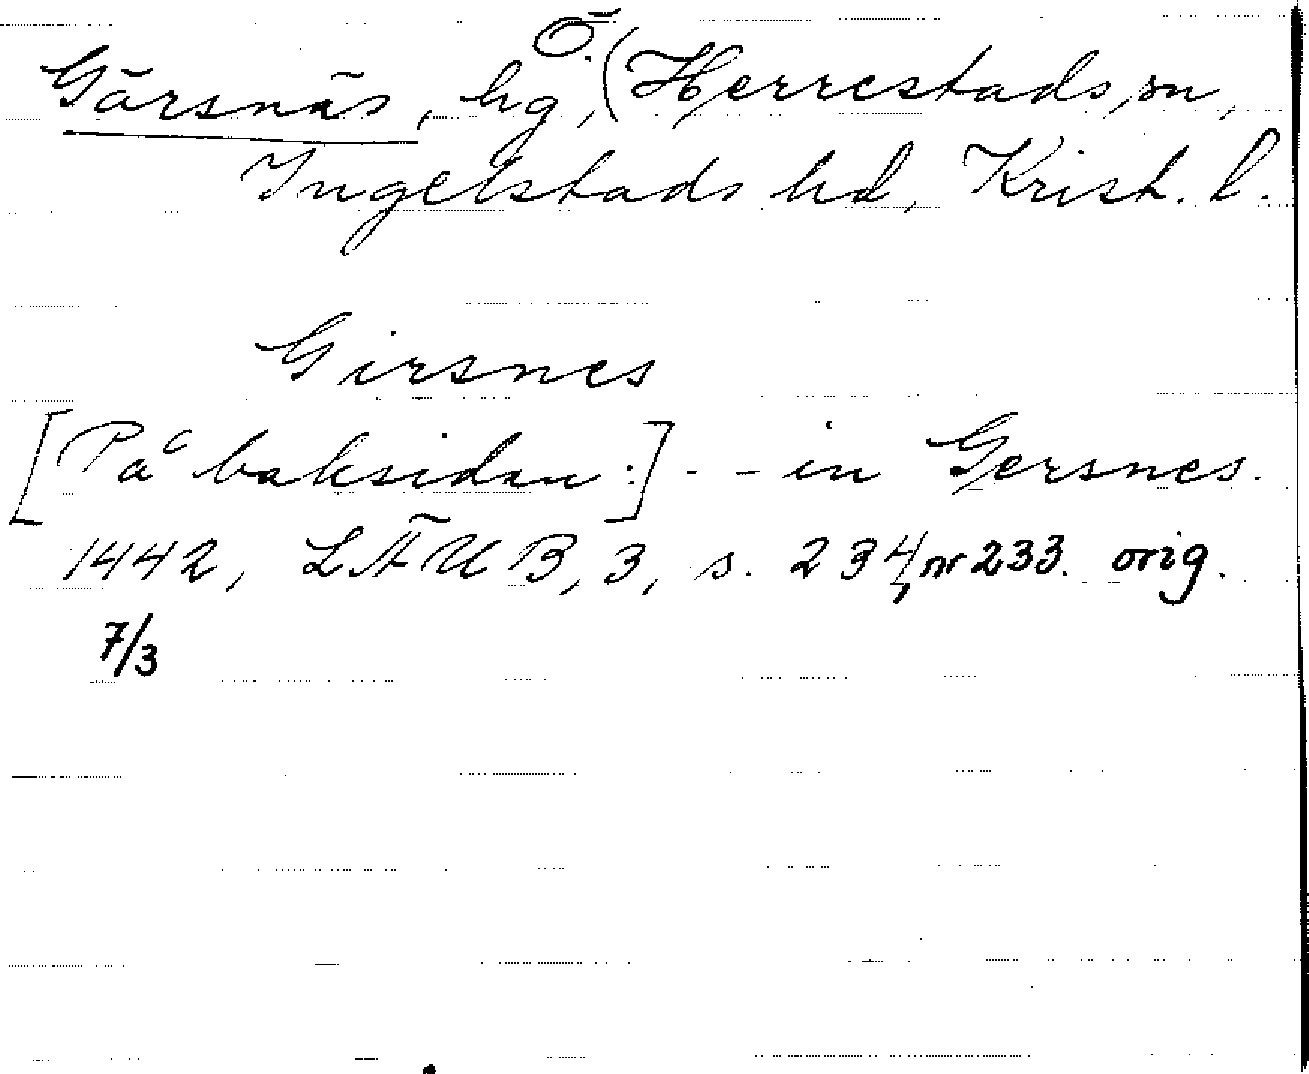 Gärsnäs, hg, Ö. (Herrestads sn,
Ingelstads hd, Krist. l.
Girsnes
[På baksidan:] - - in Gersnes.
1442, LÄUB, 3, s. 234, nr 233. orig.
7/3